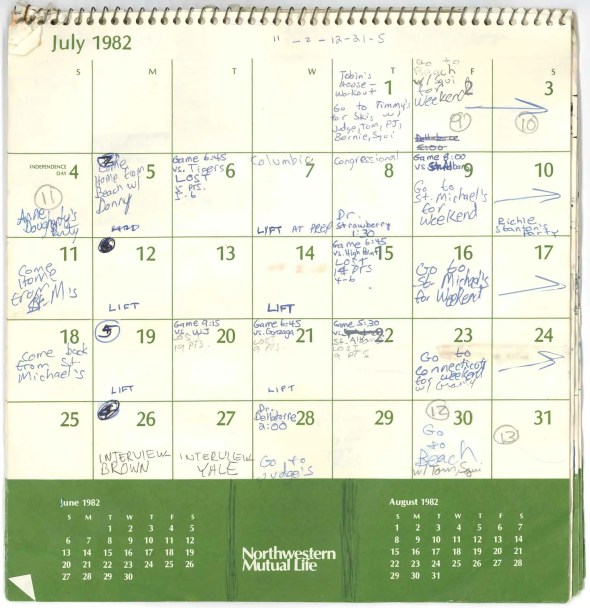 July 1982
" - 2 - 12 - 21 - 5
S M T W T F S
Tobin's
House -
Workout
1
Go to Timmy's
for Skis w/
Judge, Tom, PJ,
Bernie, Squi
Go to
Beach
w/ Squi
for
Weekend
2
9
3
10
INDEPENDENCE
DAY
4
11
Anne
Dougherty's
Party
5
Come
Home from
Beach w/
Donny
Game 6:45
vs. Tigers
6
LOST
5-6
Columbia
7
LIFT AT PREP
Congressional
8
Dr.
Strawberry
1:30
Game 8:00
vs.
9
Go to
St. Michael's
for
weekend
10
Richie
Stanton's
Party
11
Come
Home
from
St. M's
12
LIFT
13
14
LIFT
Game 6:45
vs. High Point
15
LOST
14 PTS
4-6
16
Go to
St. Michael's
for Weekend
17
18
Come back
from St.
Michael's
5
19
LIFT
Game 9:15
vs. WJ
20
LOST
19 PTS.
Game 6:45
vs. Gonzaga
21
LOST
9 PTS.
LIFT
Game 5:30
vs.
22
St. Albans
LOST
9 PTS
23
Go to
Connecticut
for weekend
w/ Grammy
24
25
26
INTERVIEW
BROWN
27
INTERVIEW
YALE
Dr.
28
2:00
Go to
Judge's
29
12
30
Go
to
Beach
w/ Tom, Squi
31
13
June 1982
S M T W T F S
1 2 3 4 5
6 7 8 9 10 11 12
13 14 15 16 17 18 19
20 21 22 23 24 25 26
27 28 29 30
Northwestern
Mutual Life
August 1982
S M T W T F S
1 2 3 4 5 6 7
8 9 10 11 12 13 14
15 16 17 18 19 20 21
22 23 24 25 26 27 28
29 30 31